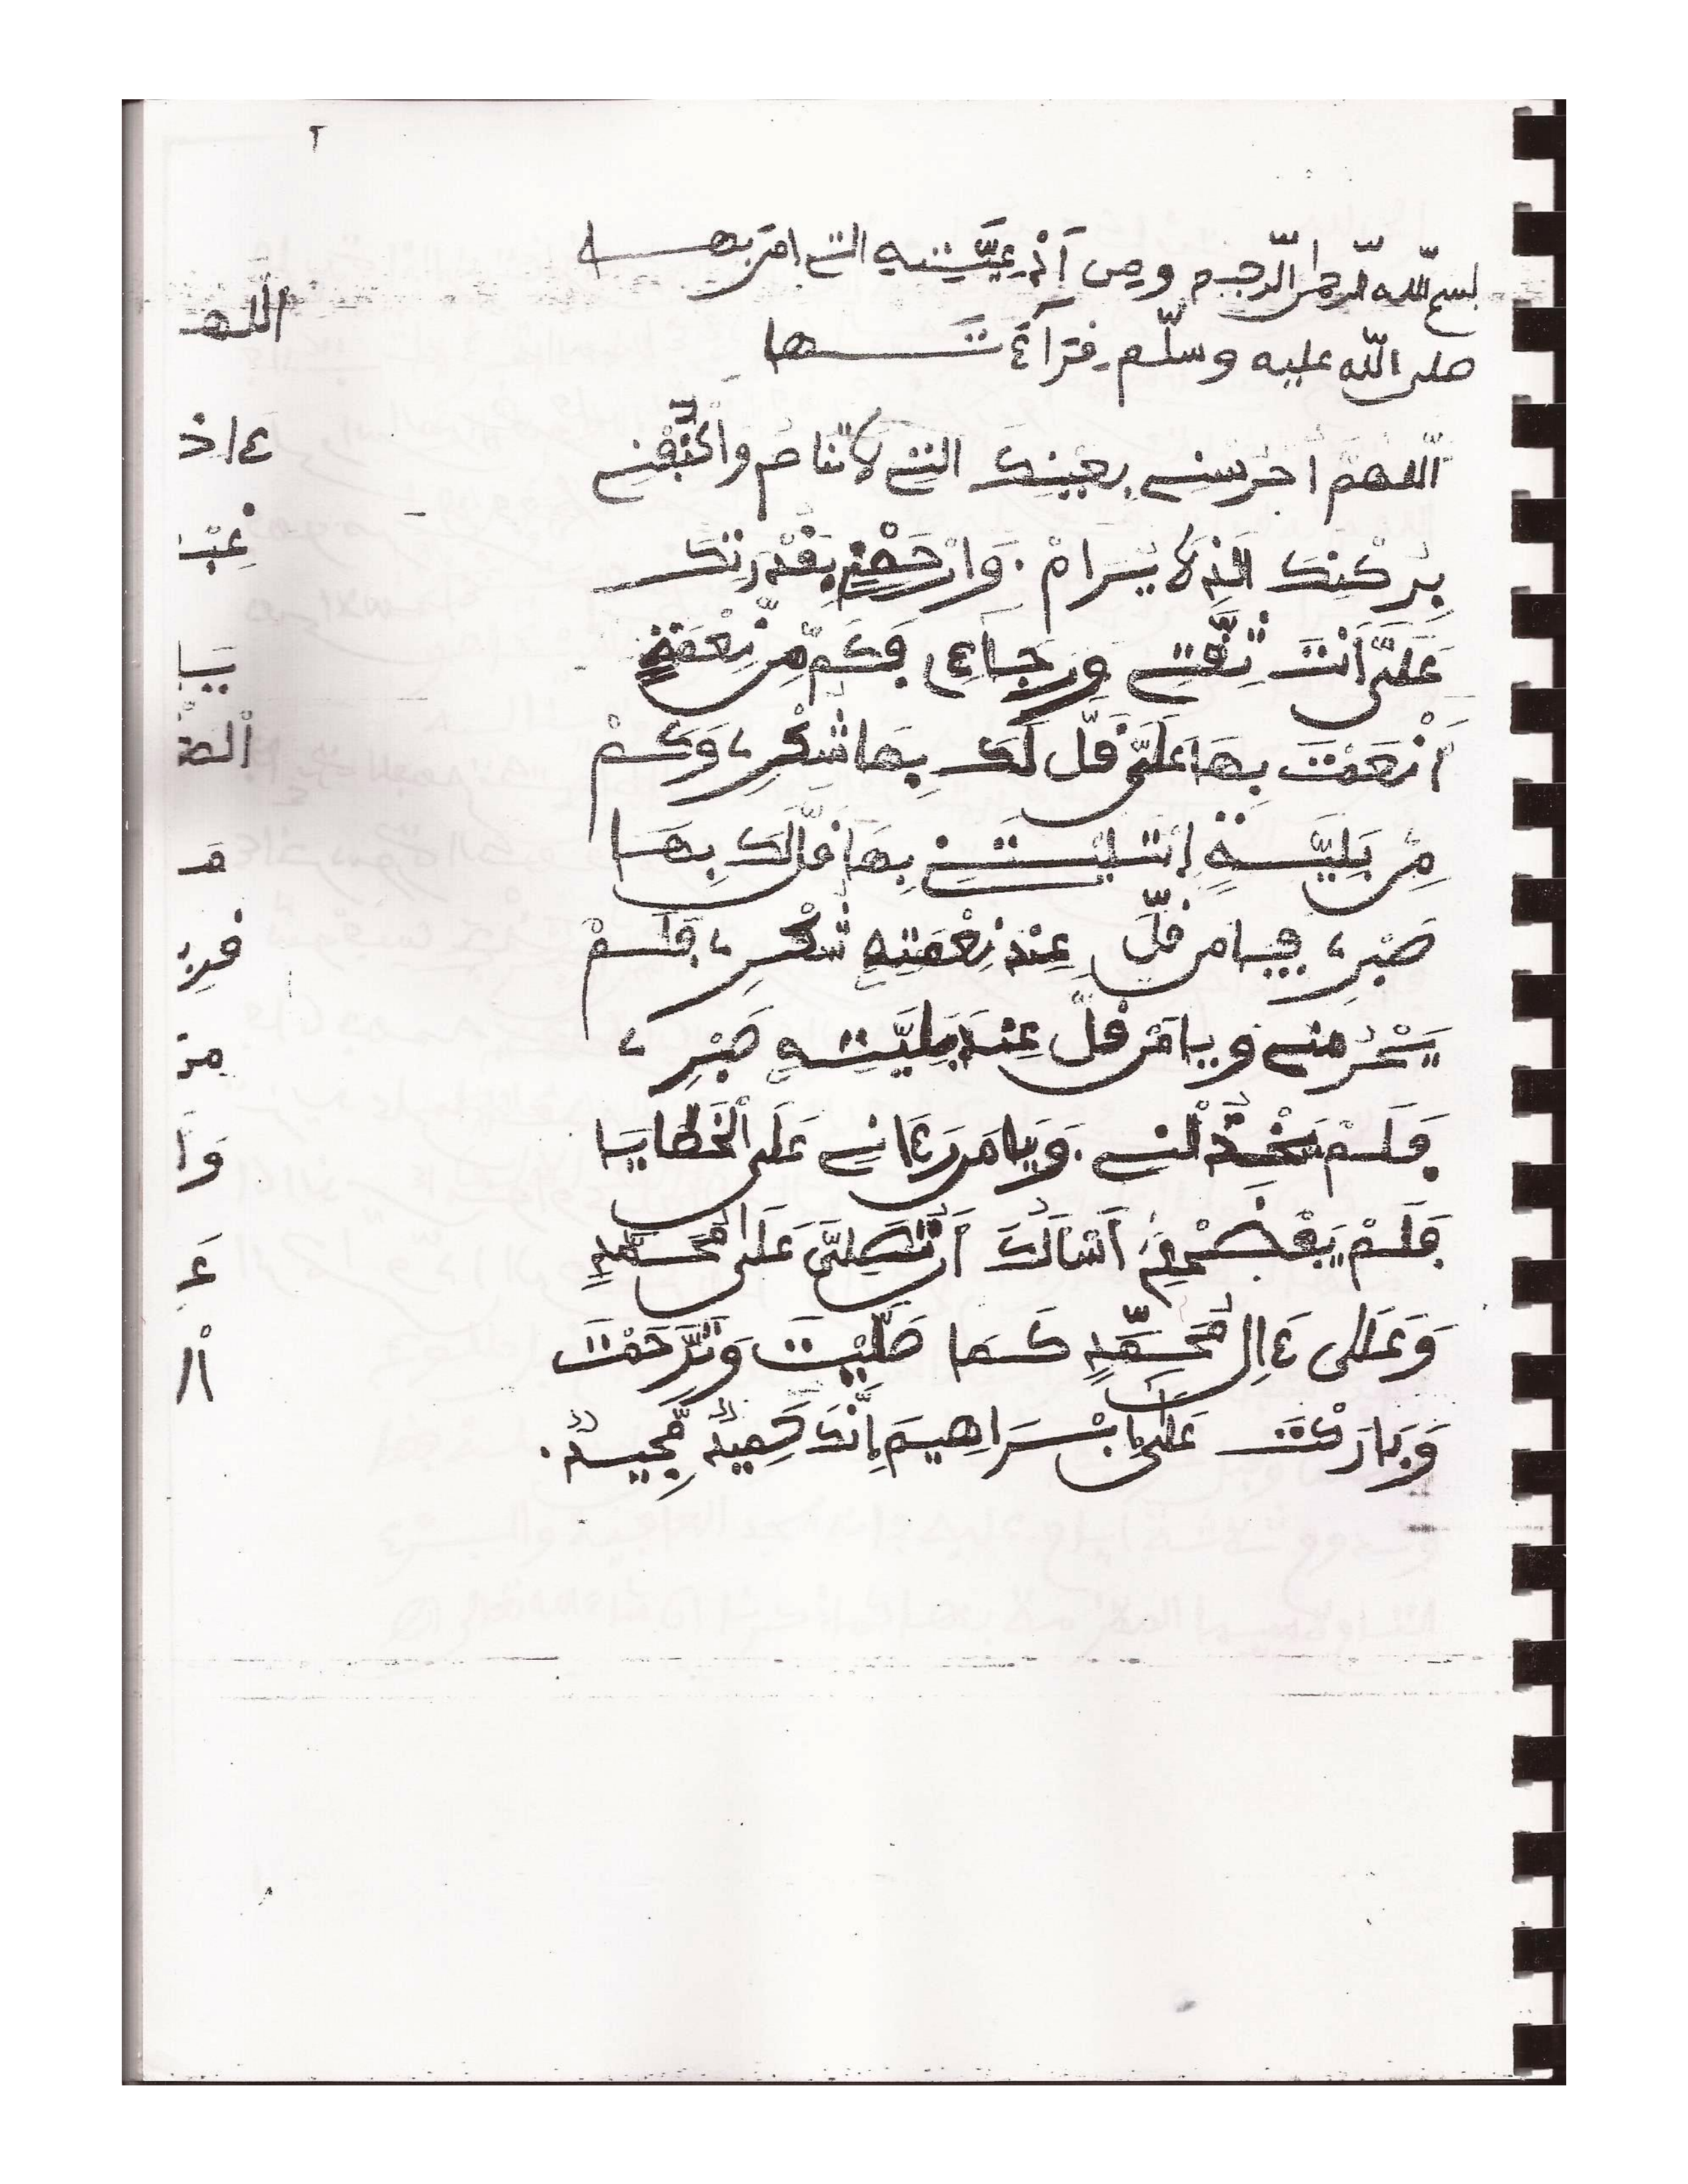 ٢
بسم الله الرحمن الرحيم ومن أَدْعِيَّتِهِ التي امر بها
صلى الله عليه وسلّم قرآءتها
اللهمّ احرسني بعينك التي لا تنام واكنُفْني
بِرُكْنِكَ الذي لا يُرَامْ. وَارْحَمْني بِقُدْرَتِكَ
عَلَيَّ أَنْتَ ثِقَتِي وَرَجَاءِي فَكَم مِّن نِعْمَةٍ
أَنْعَمْتَ بِهَا عَلَيَّ قَلّ لَكَ بِهَا شُكْرِي، وَكَمْ
مِن بَلِيَّةٍ ابْتَلَيْتَنِي بِهَا قَلّ لَكَ بِهَا
صَبْرِي، فيا من قلّ عِنْدَ نِعْمَتِهِ شُكْرِي، فَلَمْ
يَحْرِمْنِي ويا مَن قلّ عِنْدَ بَلِيَّتِهِ صَبْرِي،
فَلَمْ يَخْذُلْنِي. وَيَا مَن رَءَانِي عَلَى الْخَطَايَا
فَلَمْ يَفْضَحْنِي، أَسْأَلُكَ أَن تُصَلِّيَ عَلَى مُحَمَّدٍ
وَعَلَى ءَالِ مُحَمَّدٍ كَمَا صَلَّيْتَ وَتَرَحَّمْتَ
وَبَارَكْتَ عَلَى إِبْرَاهِيمَ إِنَّكَ حَمِيدٌ مَّجِيدٌ.